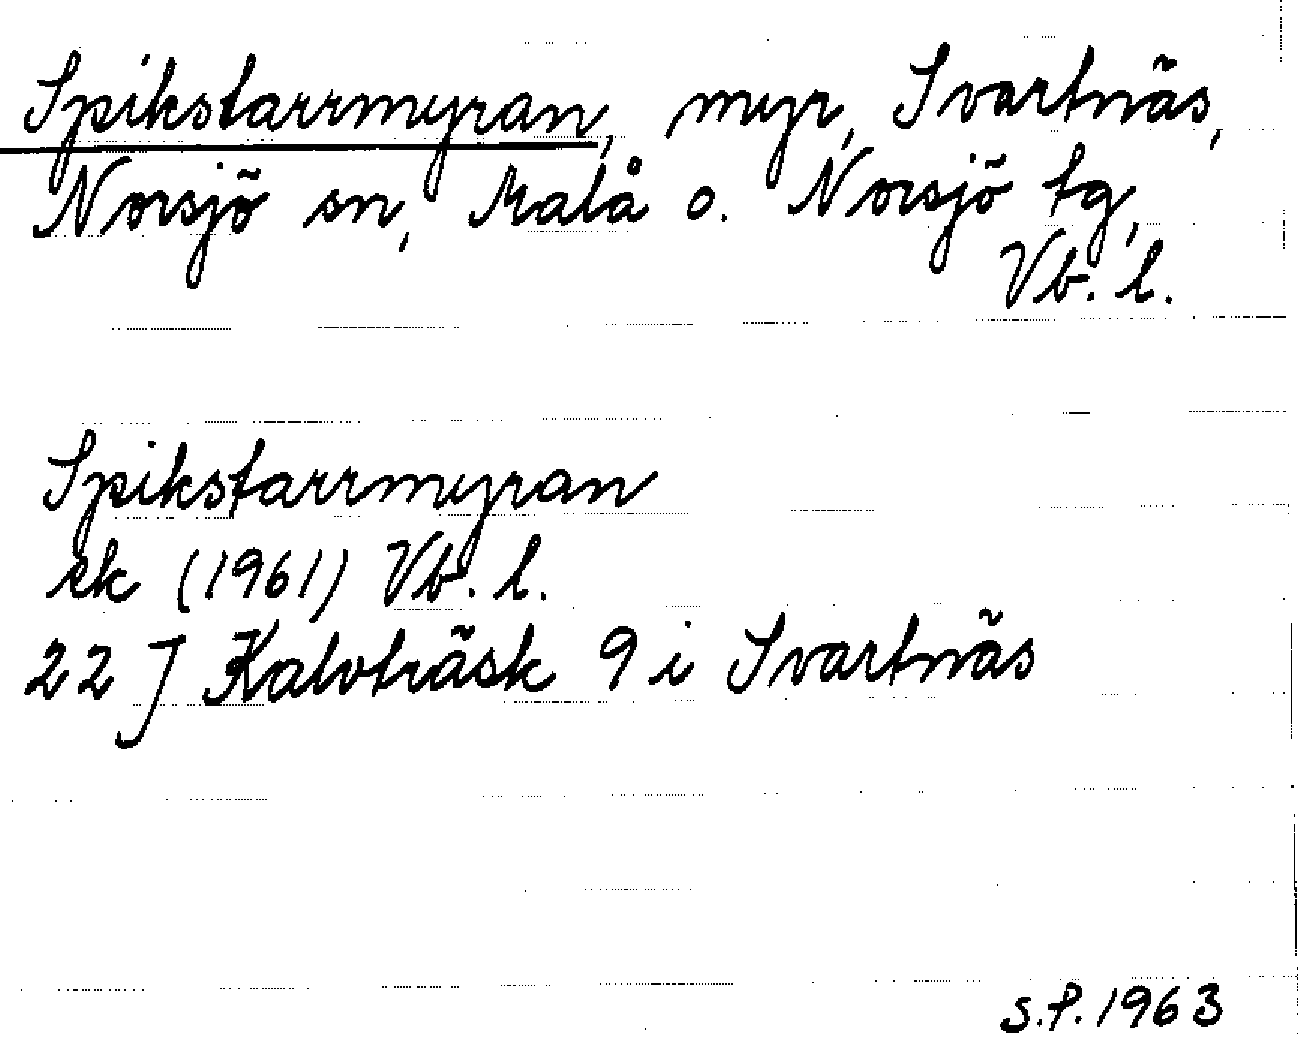 Spikstarrmyran, myr, Svartnäs,
Norsjö sn, Malå o. Norsjö tg,
Vb. l.
Spikstarrmyran
ek (1961) Vb. l.
22 J Kalvträsk 9 i Svartnäs
S.P. 1963